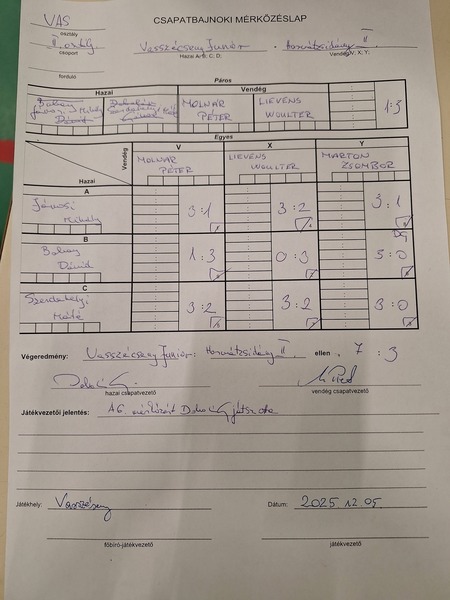 CSAPATBAJNOKI MÉRKŐZÉSLAP
VAS
osztály
II. oszt. G.
csoport
forduló
Vasszécseny Junior - Horvátzsidány II
Hazai A; B; C; D;
Vendég V; X; Y;
Páros
Hazai
Vendég
MOLNÁR PÉTER
LIEVENS WOULTER
1:3
Egyes
Vendég
Hazai
V
X
Y
MOLNÁR PÉTER
LIEVENS WOULTER
MARTON ZSOMBOR
A
Jánosi Mihály
3:1
3:2
3:1
B
Bakay Dávid
1:3
0:3
DG
3:0
C
Szerdahelyi Máté
3:2
3:2
3:0
Végeredmény: Vasszécseny Junior - Horvátzsidány II. ellen. 7 : 3
hazai csapatvezető
vendég csapatvezető
Játékvezetői jelentés:
Játékhely: Vasszécseny
Dátum: 2025 12.05.
főbíró-játékvezető
játékvezető